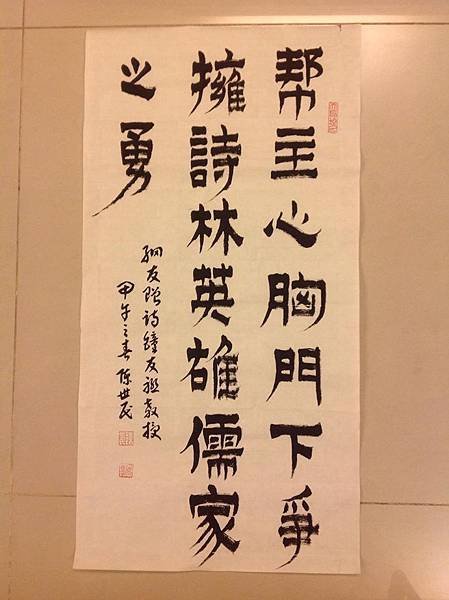 帮主心胸門下爭
擁詩林英雄儒家
之勇
網友贈诗鐘友聯教授
甲午之春陈世民